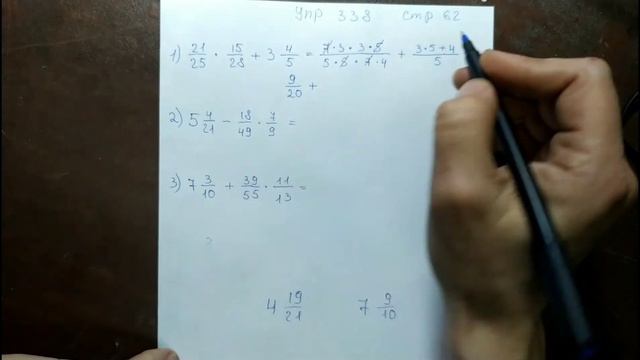 Упр 338 стр 62
1) 21/25 · 15/28 + 3 4/5 = 7·3·3·5/5·5·7·4 + 3·5+4/5
9/20 +
2) 5 4/21 - 18/49 · 7/9 =
3) 7 3/10 + 39/55 · 11/13 =
4 19/21 7 9/10